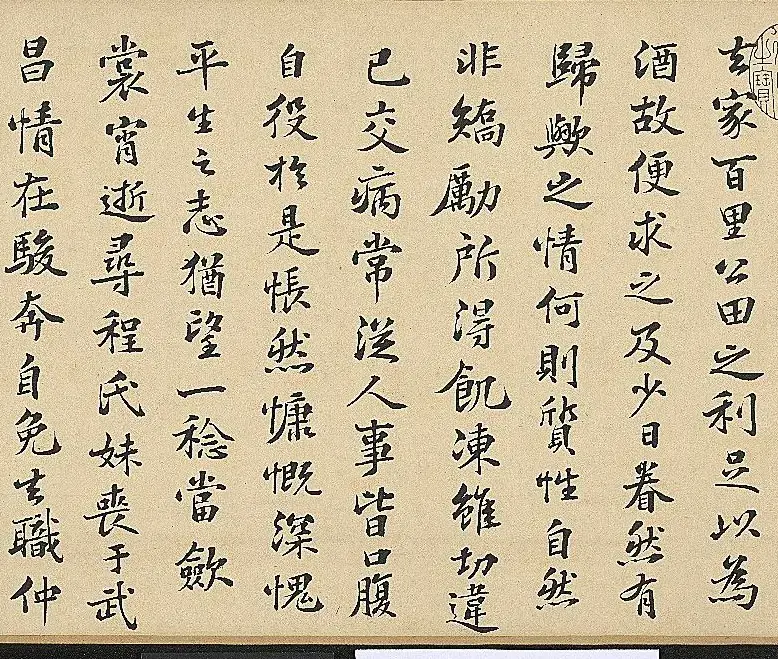 去家百里公田之利足以為
酒故便求之及少日眷然有
歸歟之情何則質性自然
非矯勵所得飢凍雖切違
已交病常從人事皆口腹
自役於是悵然慷慨深愧
平生之志猶望一稔當斂
裳宵逝尋程氏妹喪于武
昌情在駿奔自免去職仲